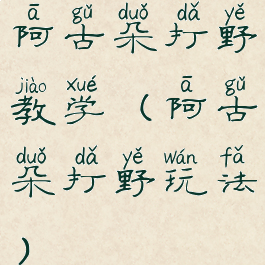 ā gǔ duǒ dǎ yě
阿古朵打野
jiào xué ā gǔ
教学（阿古
duǒ dǎ yě wán fǎ
朵打野玩法
）